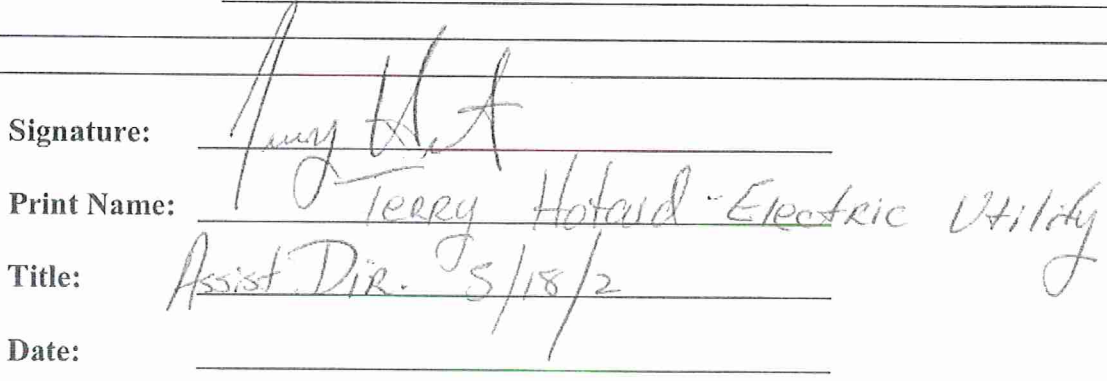 Signature:
Print Name: Terry Hotard - Electric Utility
Title: Assist Dir. 5/18/2
Date: